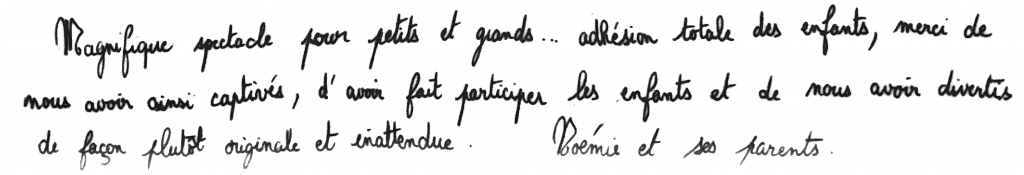 Magnifique spectacle pour petits et grands... adhésion totale des enfants, merci de
nous avoir ainsi captivés, d'avoir fait participer les enfants et de nous avoir divertis
de façon plutôt originale et inattendue. Noémie et ses parents.